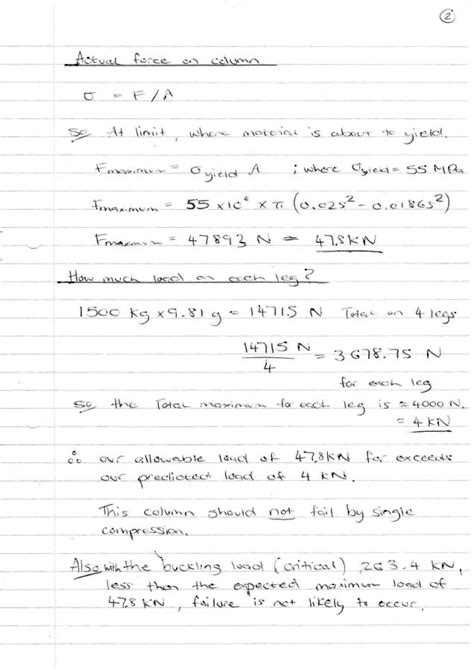 ②
Actual force on column
σ = F/A
So At limit, where material is about to yield.
Fmaximum = σyield A ; where σyield = 55 MPa
Fmaximum = 55 x10⁶ x π (0.025² - 0.0186s²)
Fmaximum = 47893 N = 47.8KN
How much load on each leg?
1500 kg x 9.81 g = 14715 N Total on 4 legs
14715 N / 4 = 3678.75 N
for each leg
So the Total maximum for each leg is ≈ 4000 N.
= 4 KN
∴ our allowable load of 47.8KN far exceeds
our predicted load of 4 KN.
This column should not fail by single
compression.
Also with the buckling load (critical) 263.4 KN,
less than the expected maximum load of
47.8 KN, failure is not likely to occur.